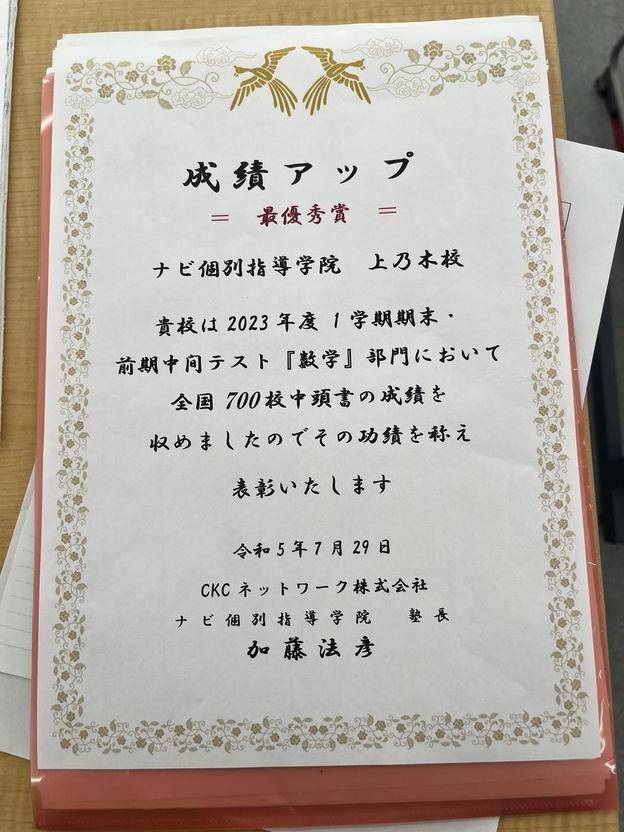 成績アップ
＝ 最優秀賞 ＝
ナビ個別指導学院 上乃木校
貴校は2023年度 1学期期末・
前期中間テスト『数学』部門において
全国700校中頭書の成績を
収めましたのでその功績を称え
表彰いたします
令和5年7月29日
CKCネットワーク株式会社
ナビ個別指導学院 塾長
加藤法彦